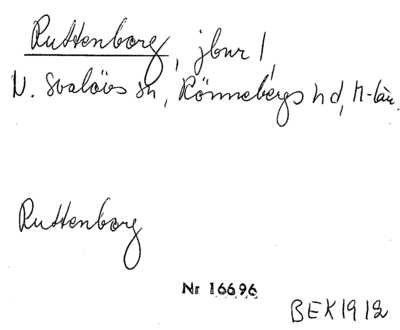 Ruttenborg, jbur 1,
N. Svalövs sn, Rönnebergs hd, M-län.
Ruttenborg
Nr 16696
BEK 1912